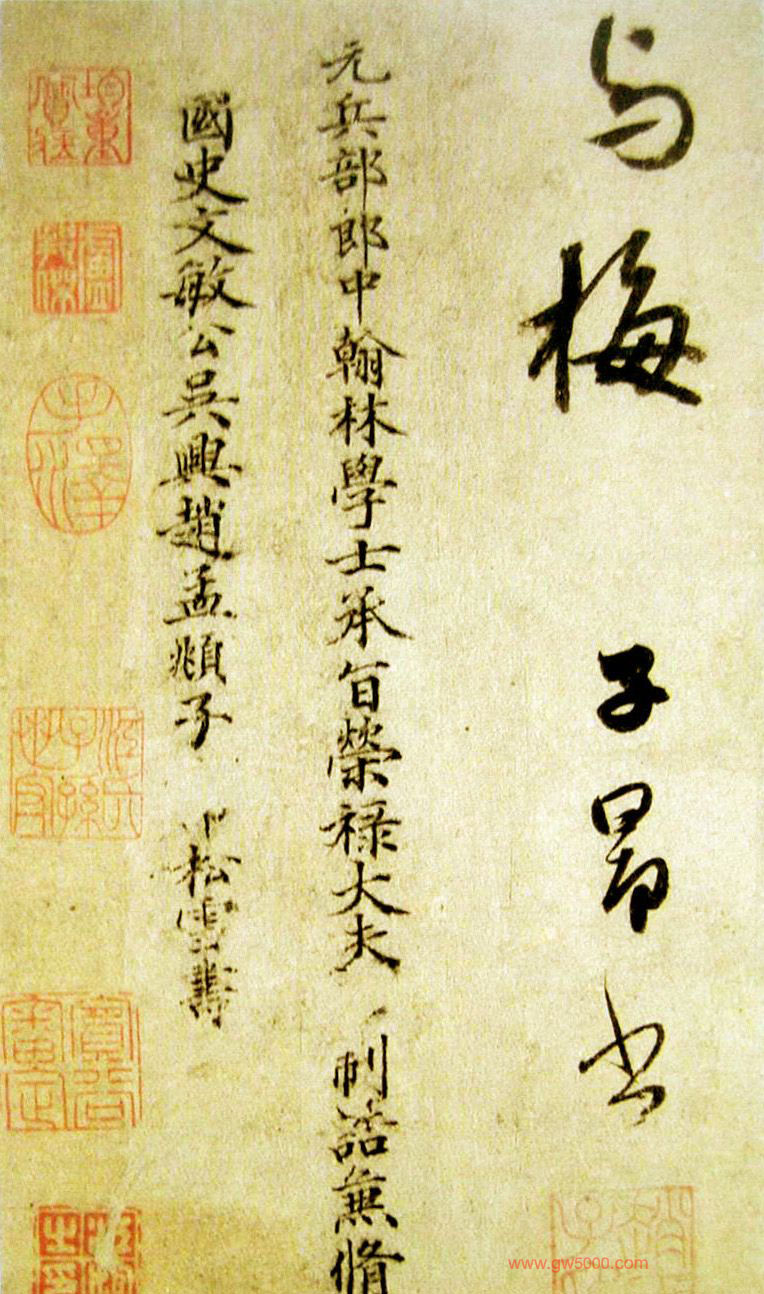 与梅 子昂书
元兵部郎中翰林學士承旨榮禄大夫 制誥兼脩
國史文敏公吳興趙孟頫子 松雪齋
www.gw5000.com